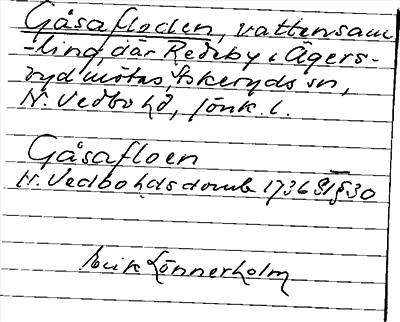 Gåsafloden, vattensam-
-ling, där Redeby i Ägers-
ryd mötas, Askeryds sn,
N. Vedbo hd, Jönk. l.
Gåsafloen
N. Vedbo hds domb 1736 § 30
Erik Lönnerholm